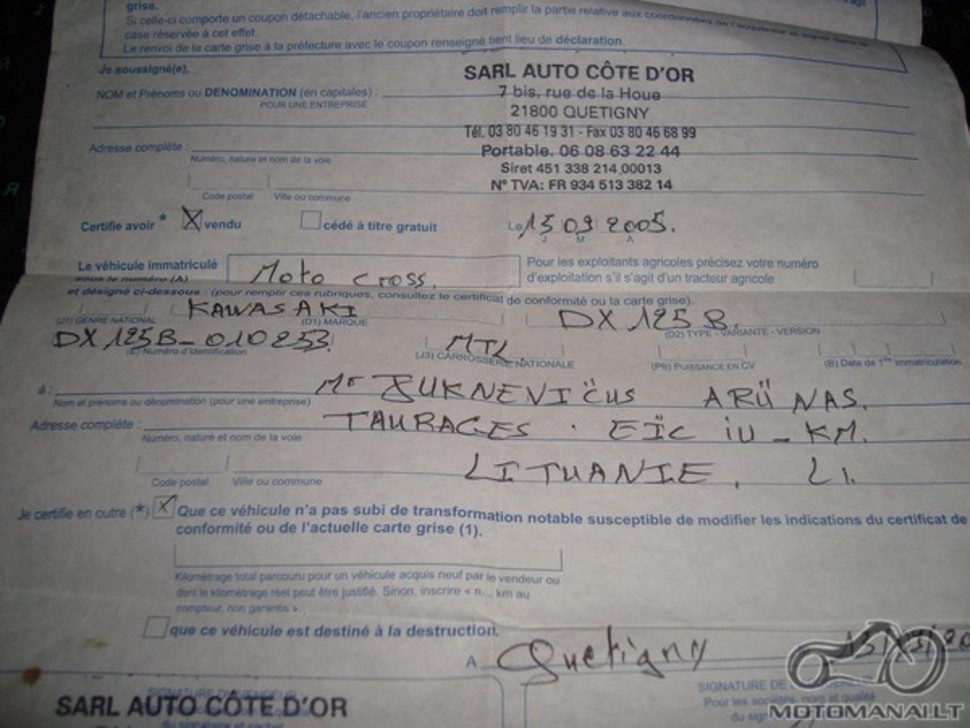 grise.
Si celle-ci comporte un coupon détachable, l'ancien propriétaire doit remplir la partie relative aux coordonnées de l'acquéreur
case réservée à cet effet.
Le renvoi de la carte grise à la préfecture avec le coupon renseigné tient lieu de déclaration.
Je soussigné(e),
SARL AUTO CÔTE D'OR
NOM et Prénoms ou DENOMINATION (en capitales) :
7 bis, rue de la Houe
POUR UNE ENTREPRISE
21800 QUETIGNY
Tél. 03 80 46 19 31 - Fax 03 80 46 68 99
Adresse complète :
Portable. 06 08 63 22 44
Numéro, nature et nom de la voie
Siret 451 338 214 00013
N° TVA: FR 934 513 382 14
Code postal Ville ou commune
Certifie avoir * X vendu cédé à titre gratuit Le 15 09 2005.
J M A
Le véhicule immatriculé
sous le numéro (A)
Moto cross.
Pour les exploitants agricoles précisez votre numéro
d'exploitation s'il s'agit d'un tracteur agricole
et désigné ci-dessous : (pour remplir ces rubriques, consultez le certificat de conformité ou la carte grise).
KAWASAKI DX 125 B.
(J1) GENRE NATIONAL (D1) MARQUE (D2) TYPE - VARIANTE - VERSION
DX 125B-010253. MTL.
(E) Numéro d'identification (J3) CARROSSERIE NATIONALE (P6) PUISSANCE EN CV (B) Date de 1ère immatriculation
à : Mr ŽUKNEVIČUS ARŪNAS.
Nom et prénoms ou dénomination (pour une entreprise)
Adresse complète : TAURAGES . KM.
Numéro, nature et nom de la voie
LITUANIE.
Code postal Ville ou commune
Je certifie en outre (*) X Que ce véhicule n'a pas subi de transformation notable susceptible de modifier les indications du certificat de
conformité ou de l'actuelle carte grise (1).
Kilométrage total parcouru pour un véhicule acquis neuf par le vendeur ou
dont le kilométrage réel peut être justifié. Sinon, inscrire « n... km au
compteur, non garantis ».
que ce véhicule est destiné à la destruction.
A Quetigny
SIGNATURE DE
SARL AUTO CÔTE D'OR
Pour les sociétés, nom et qualité
du signataire et cachet
MOTOMANAI.LT